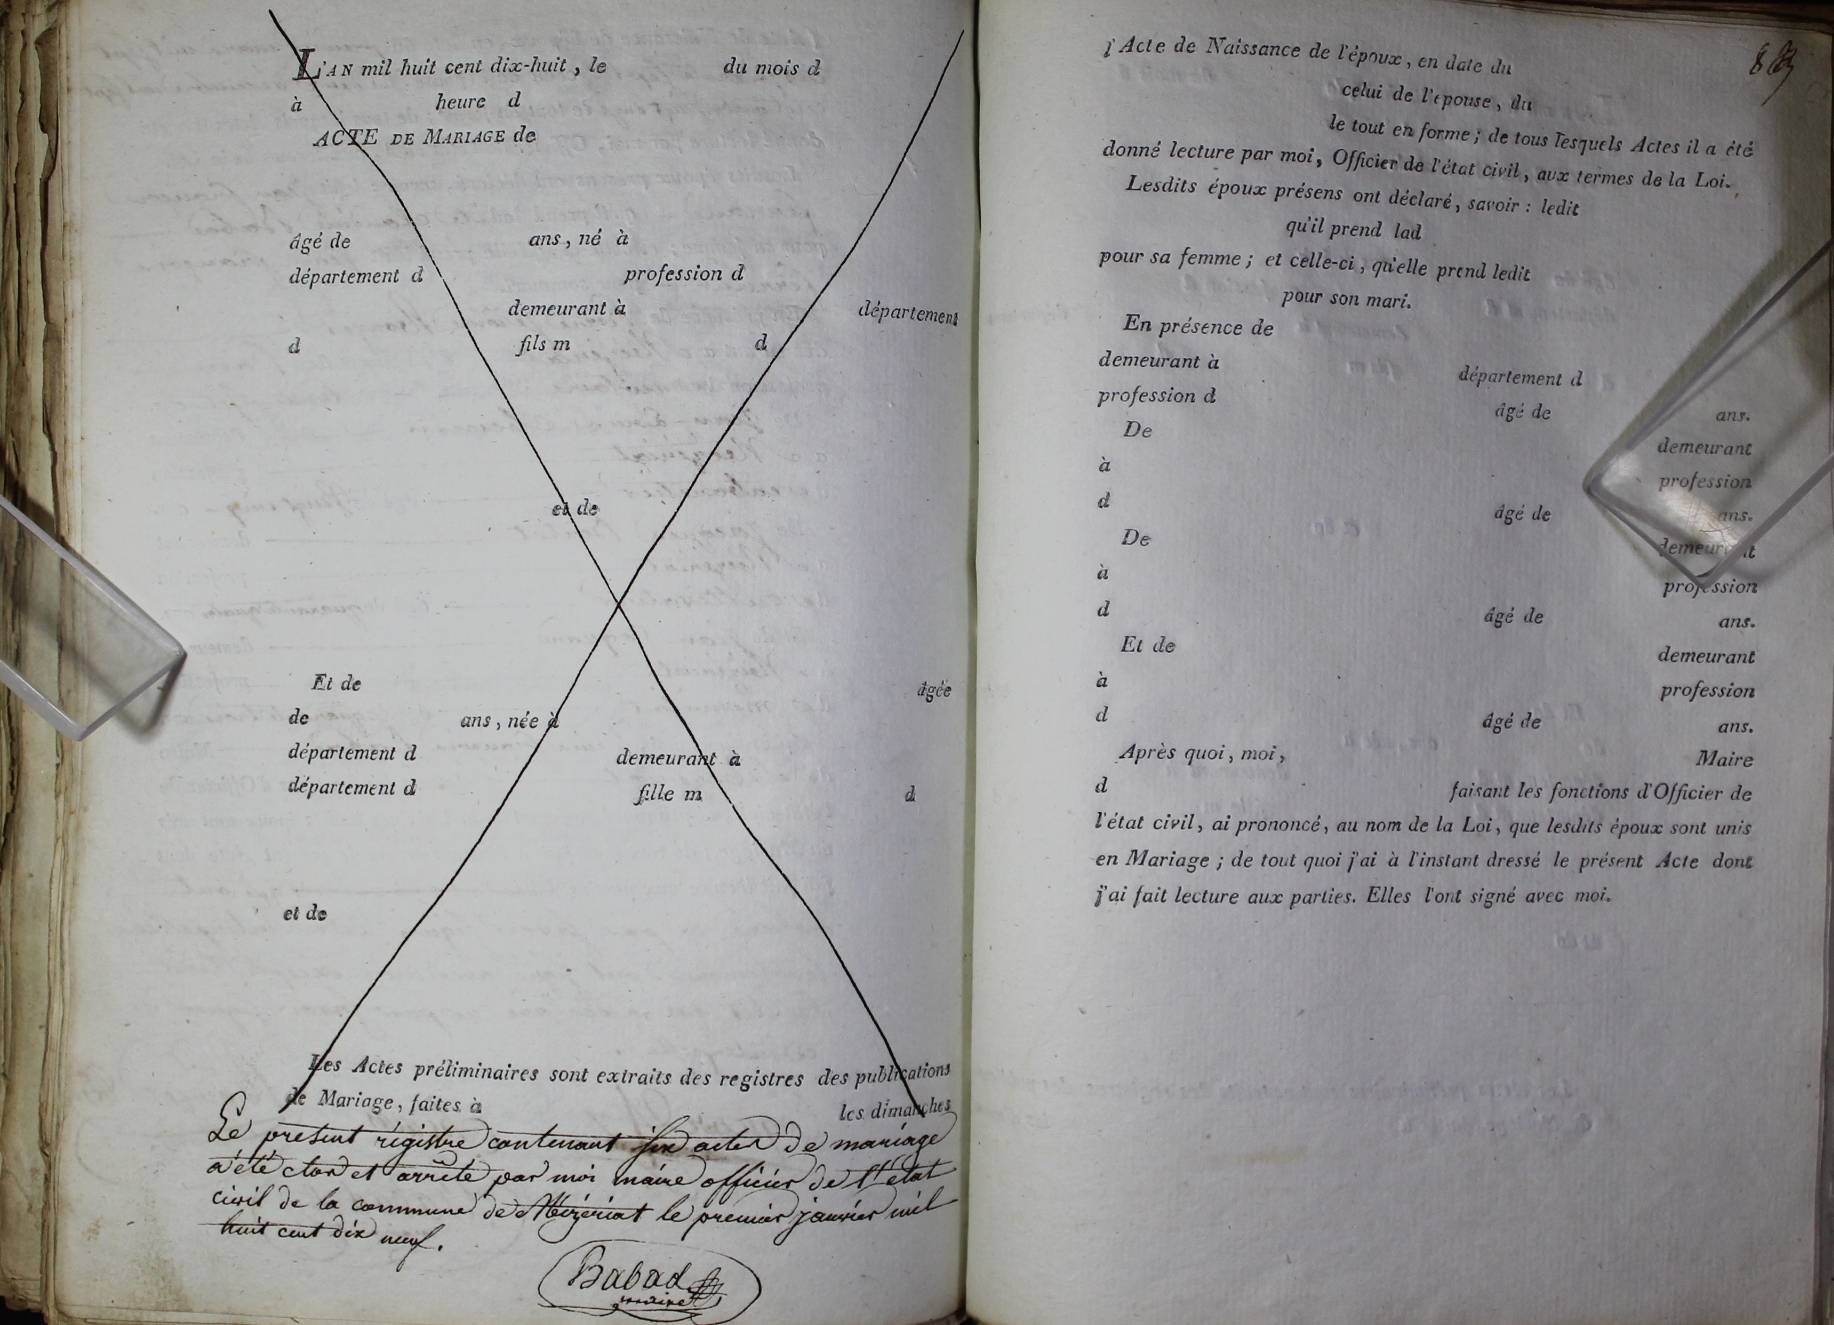 L'AN mil huit cent dix-huit, le du mois d
à heure d
ACTE DE MARIAGE de
âgé de ans, né à
département d profession d
demeurant à département
d fils m d
et de
Et de âgée
de ans, née à
département d demeurant à
département d fille m d
et de
Les Actes préliminaires sont extraits des registres des publications
de Mariage, faites à les dimanches
Le present régistre contenant six actes De mariage
a été clos et arrêté par moi maire officier de l'état
civil de la commune de Mézériat le premier janvier mil
huit cent dix neuf.
Babad
maire
l'Acte de Naissance de l'époux, en date du
celui de l'épouse, du
le tout en forme; de tous lesquels Actes il a été
donné lecture par moi, Officier de l'état civil, aux termes de la Loi.
Lesdits époux présens ont déclaré, savoir: ledit
qu'il prend lad
pour sa femme; et celle-ci, qu'elle prend ledit
pour son mari.
En présence de
demeurant à département d
profession d âgé de ans.
De demeurant
à profession
d âgé de ans.
De demeurant
à profession
d âgé de ans.
Et de demeurant
à profession
d âgé de ans.
Après quoi, moi, Maire
d faisant les fonctions d'Officier de
l'état civil, ai prononcé, au nom de la Loi, que lesdits époux sont unis
en Mariage; de tout quoi j'ai à l'instant dressé le présent Acte dont
j'ai fait lecture aux parties. Elles l'ont signé avec moi.